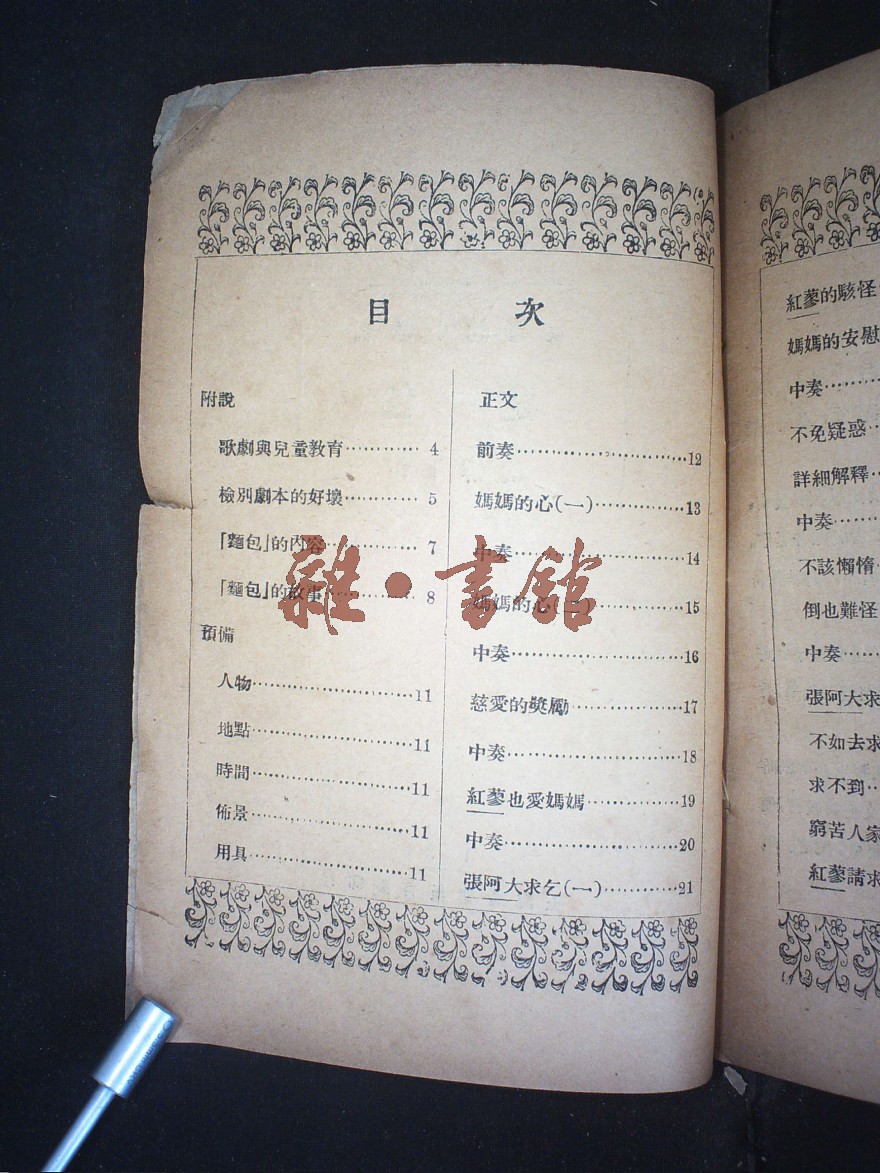 目次
附說
歌劇與兒童教育…………4
檢別劇本的好壞…………5
「麵包」的內容…………7
「麵包」的故事…………8
預備
人物…………11
地點…………11
時間…………11
佈景…………11
用具…………11
正文
前奏…………12
媽媽的心(一)…………13
中奏…………14
媽媽的心(二)…………15
中奏…………16
慈愛的獎勵…………17
中奏…………18
紅蓼也愛媽媽…………19
中奏…………20
張阿大求乞(一)…………21
紅蓼的駭怪
媽媽的安慰
中奏…………
不免疑惑…
詳細解釋…
中奏…………
不該懶惰…
倒也難怪
中奏…………
張阿大求
不如去求
求不到…
窮苦人家
紅蓼請求
雜·書館